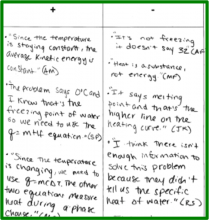 +
-
• "Since the temperature
is staying constant, the
average kinetic energy is
constant." (Am)
• "The problem says 0°C and
I know that's the
freezing point of water
so we need to use the
q = mHf equation." (SF)
• "Since the temperature
is changing, we need to
use q=mCΔT. The other
two equations measure
heat during a phase
change."
• "It's not freezing
it doesn't say 32 (AF
• "Heat is a substance,
not energy" (MP)
• "It says melting
point and that's the
higher line on the
heating curve." (JK)
• "I think there isn't
enough information to
solve this problem
because they didn't
tell us the specific
heat of water." (RS)